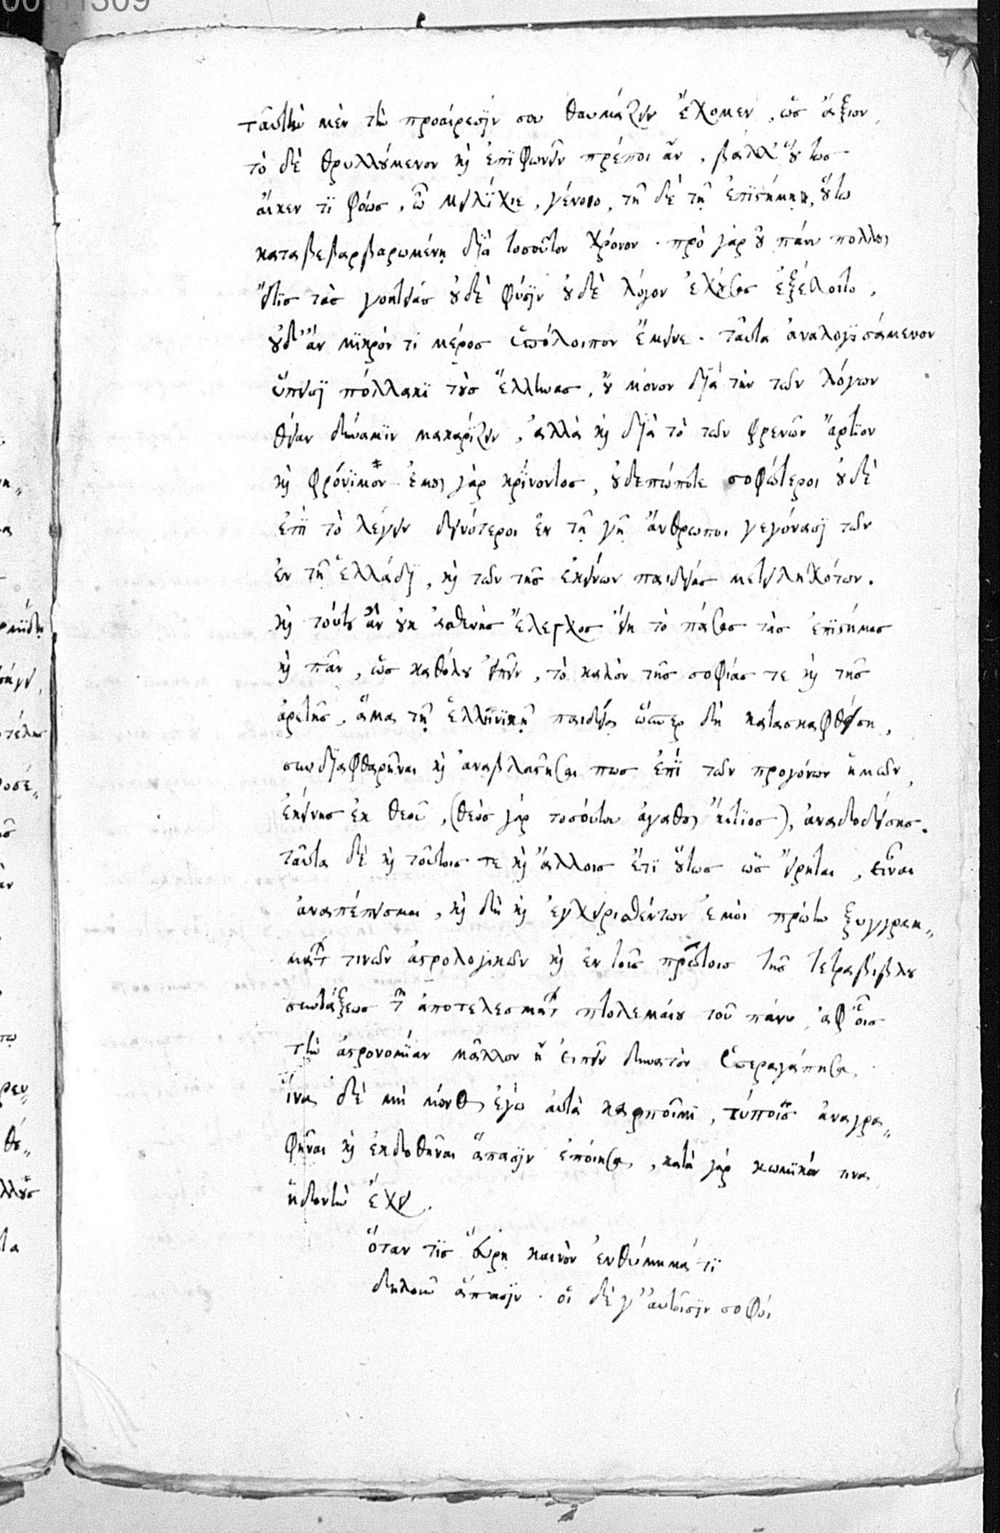 ταύτην μὲν τὴν προαίρεσίν σου θαυμάζειν ἔχομεν, ὡς ἄξιον,
τὸ δὲ θρυλλούμενον καὶ ἐπιφωνεῖν πρέποι ἂν, βάλλ' οὕτως
αἴκεν τι φόως, ὦ μειλίχιε, γένοιο, τῇ δὲ τῇ ἐπιστήμῃ, οὕτω
καταβεβαρβαρωμένῃ διὰ τοσοῦτον χρόνον. πρὸ γὰρ οὐ πάνυ πολλοῦ
τὰς γοητείας οὐδὲ φύσιν οὐδὲ λόγον ἐχούσας ἐξέλοιτο,
οὐδ' ἂν μικρόν τι μέρος ὑπόλοιπον ἔμεινε. ταῦτα ἀναλογισάμενον
ἔπεισι πολλάκι τοὺς ἕλληνας, οὐ μόνον διὰ τὴν τῶν λόγων
θείαν δύναμιν μακαρίζειν, ἀλλὰ καὶ διὰ τὸ τῶν φρενῶν ἄρτιον
καὶ φρόνιμον ἐμοῦ γὰρ κρίνοντος, οὐδεπώποτε σοφώτεροι οὐδὲ
ἐπὶ τὸ λέγειν δεινότεροι ἐν τῇ γῇ ἄνθρωποι γεγόνασι τῶν
ἐν τῇ ἑλλάδι, καὶ τῶν τῆς ἐκείνων παιδείας μετειληχότων.
καὶ τούτου ἂν οὐκ ἀσθενὴς ἔλεγχος εἴη τὸ πάσας τὰς ἐπιστήμας
καὶ πᾶν, ὡς καθόλου εἰπεῖν, τὸ καλὸν τῆς σοφίας τε καὶ τῆς
ἀρετῆς, ἅμα τῇ ἑλληνικῇ παιδείᾳ ὥσπερ δὴ κατασκαφθείσῃ,
συνδιαφθαρῆναι καὶ ἀναβλαστῆσαι πως ἐπὶ τῶν προγόνων ἡμῶν,
ἐκείνης ἐκ θεοῦ, (θεὸς γὰρ τοσούτου ἀγαθοῦ αἴτιος), ἀναδοθείσης.
ταῦτα δὲ καὶ τούτοις τε καὶ ἄλλοις ἔτι οὕτως ὡς εἴρηται, εἶναι
ἀναπέπεισμαι, καὶ δὴ καὶ ἐγχειρισθέντων ἐμοὶ πρώτῳ ξυγγραμ„
μάτων τινῶν ἀστρολογικῶν καὶ ἐν τοῖς πρώτοις τῆς τετραβίβλου
συντάξεως τῶν ἀποτελεσμάτων πτολεμαίου τοῦ πάνυ, ἀφ' οἷς
τὴν ἀστρονομίαν μᾶλλον ἢ εἰπεῖν δυνατὸν ὑπεραγάπησα,
ἵνα δὲ μὴ μόνος ἐγὼ αὐτὰ καρποῖμι, τύποις ἀναγρα„
φῆναι καὶ ἐκδοθῆναι ἅπασιν ἐποίησα, κατὰ γὰρ κωμικόν τινα
ἡδονὴν ἔχει.
ὅταν τις εὕρῃ καινὸν ἐνθύμημά τι
δηλοῦν ἅπασιν. οἱ δέ γ' αὑτοῖσιν σοφοί